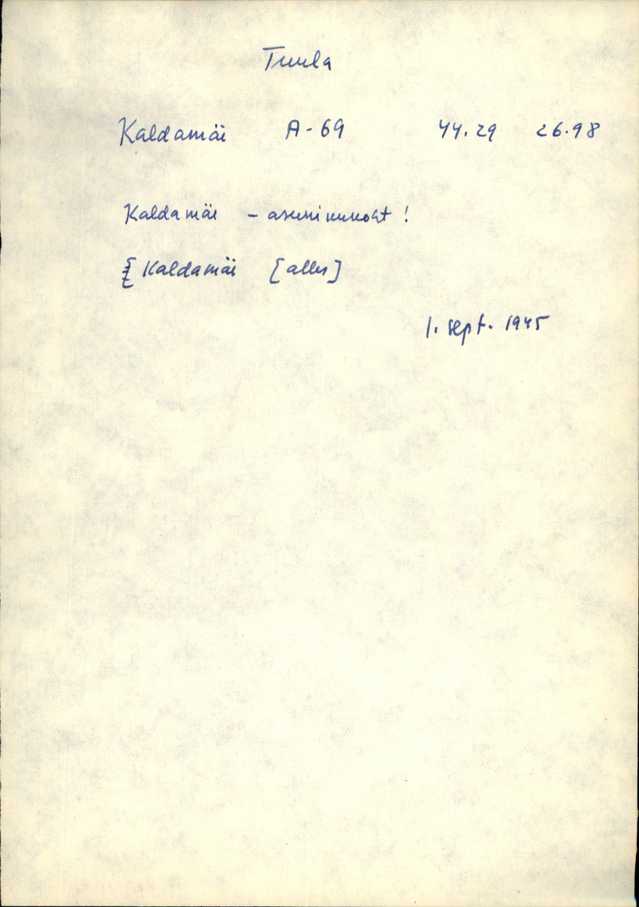 Tuula
Kaldamäe A-69 44.29 26.98
Kaldamäe - asunikukoht!
Kaldamäe [alles]
1. sept. 1945